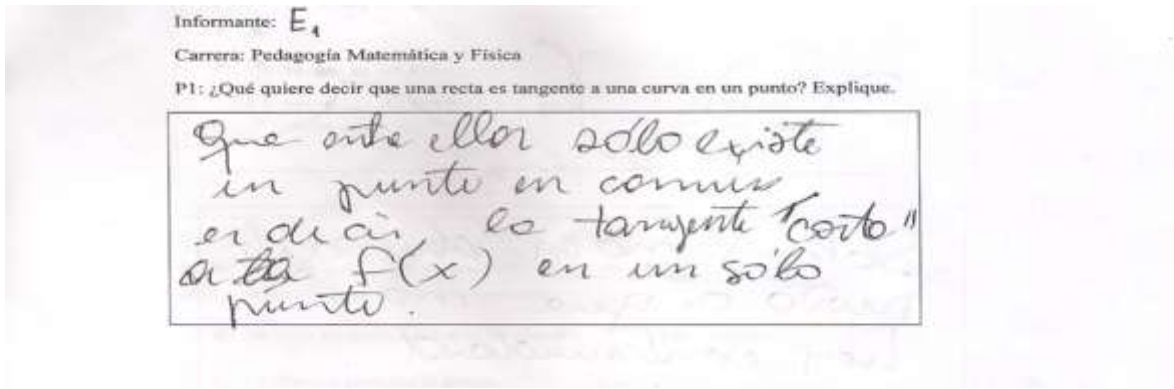 Informante: E1
Carrera: Pedagogía Matemática y Física
P1: ¿Qué quiere decir que una recta es tangente a una curva en un punto? Explique.
Que entre ellas sólo existe
un punto en común
es decir, la tangente "corta"
a la f(x) en un sólo
punto.